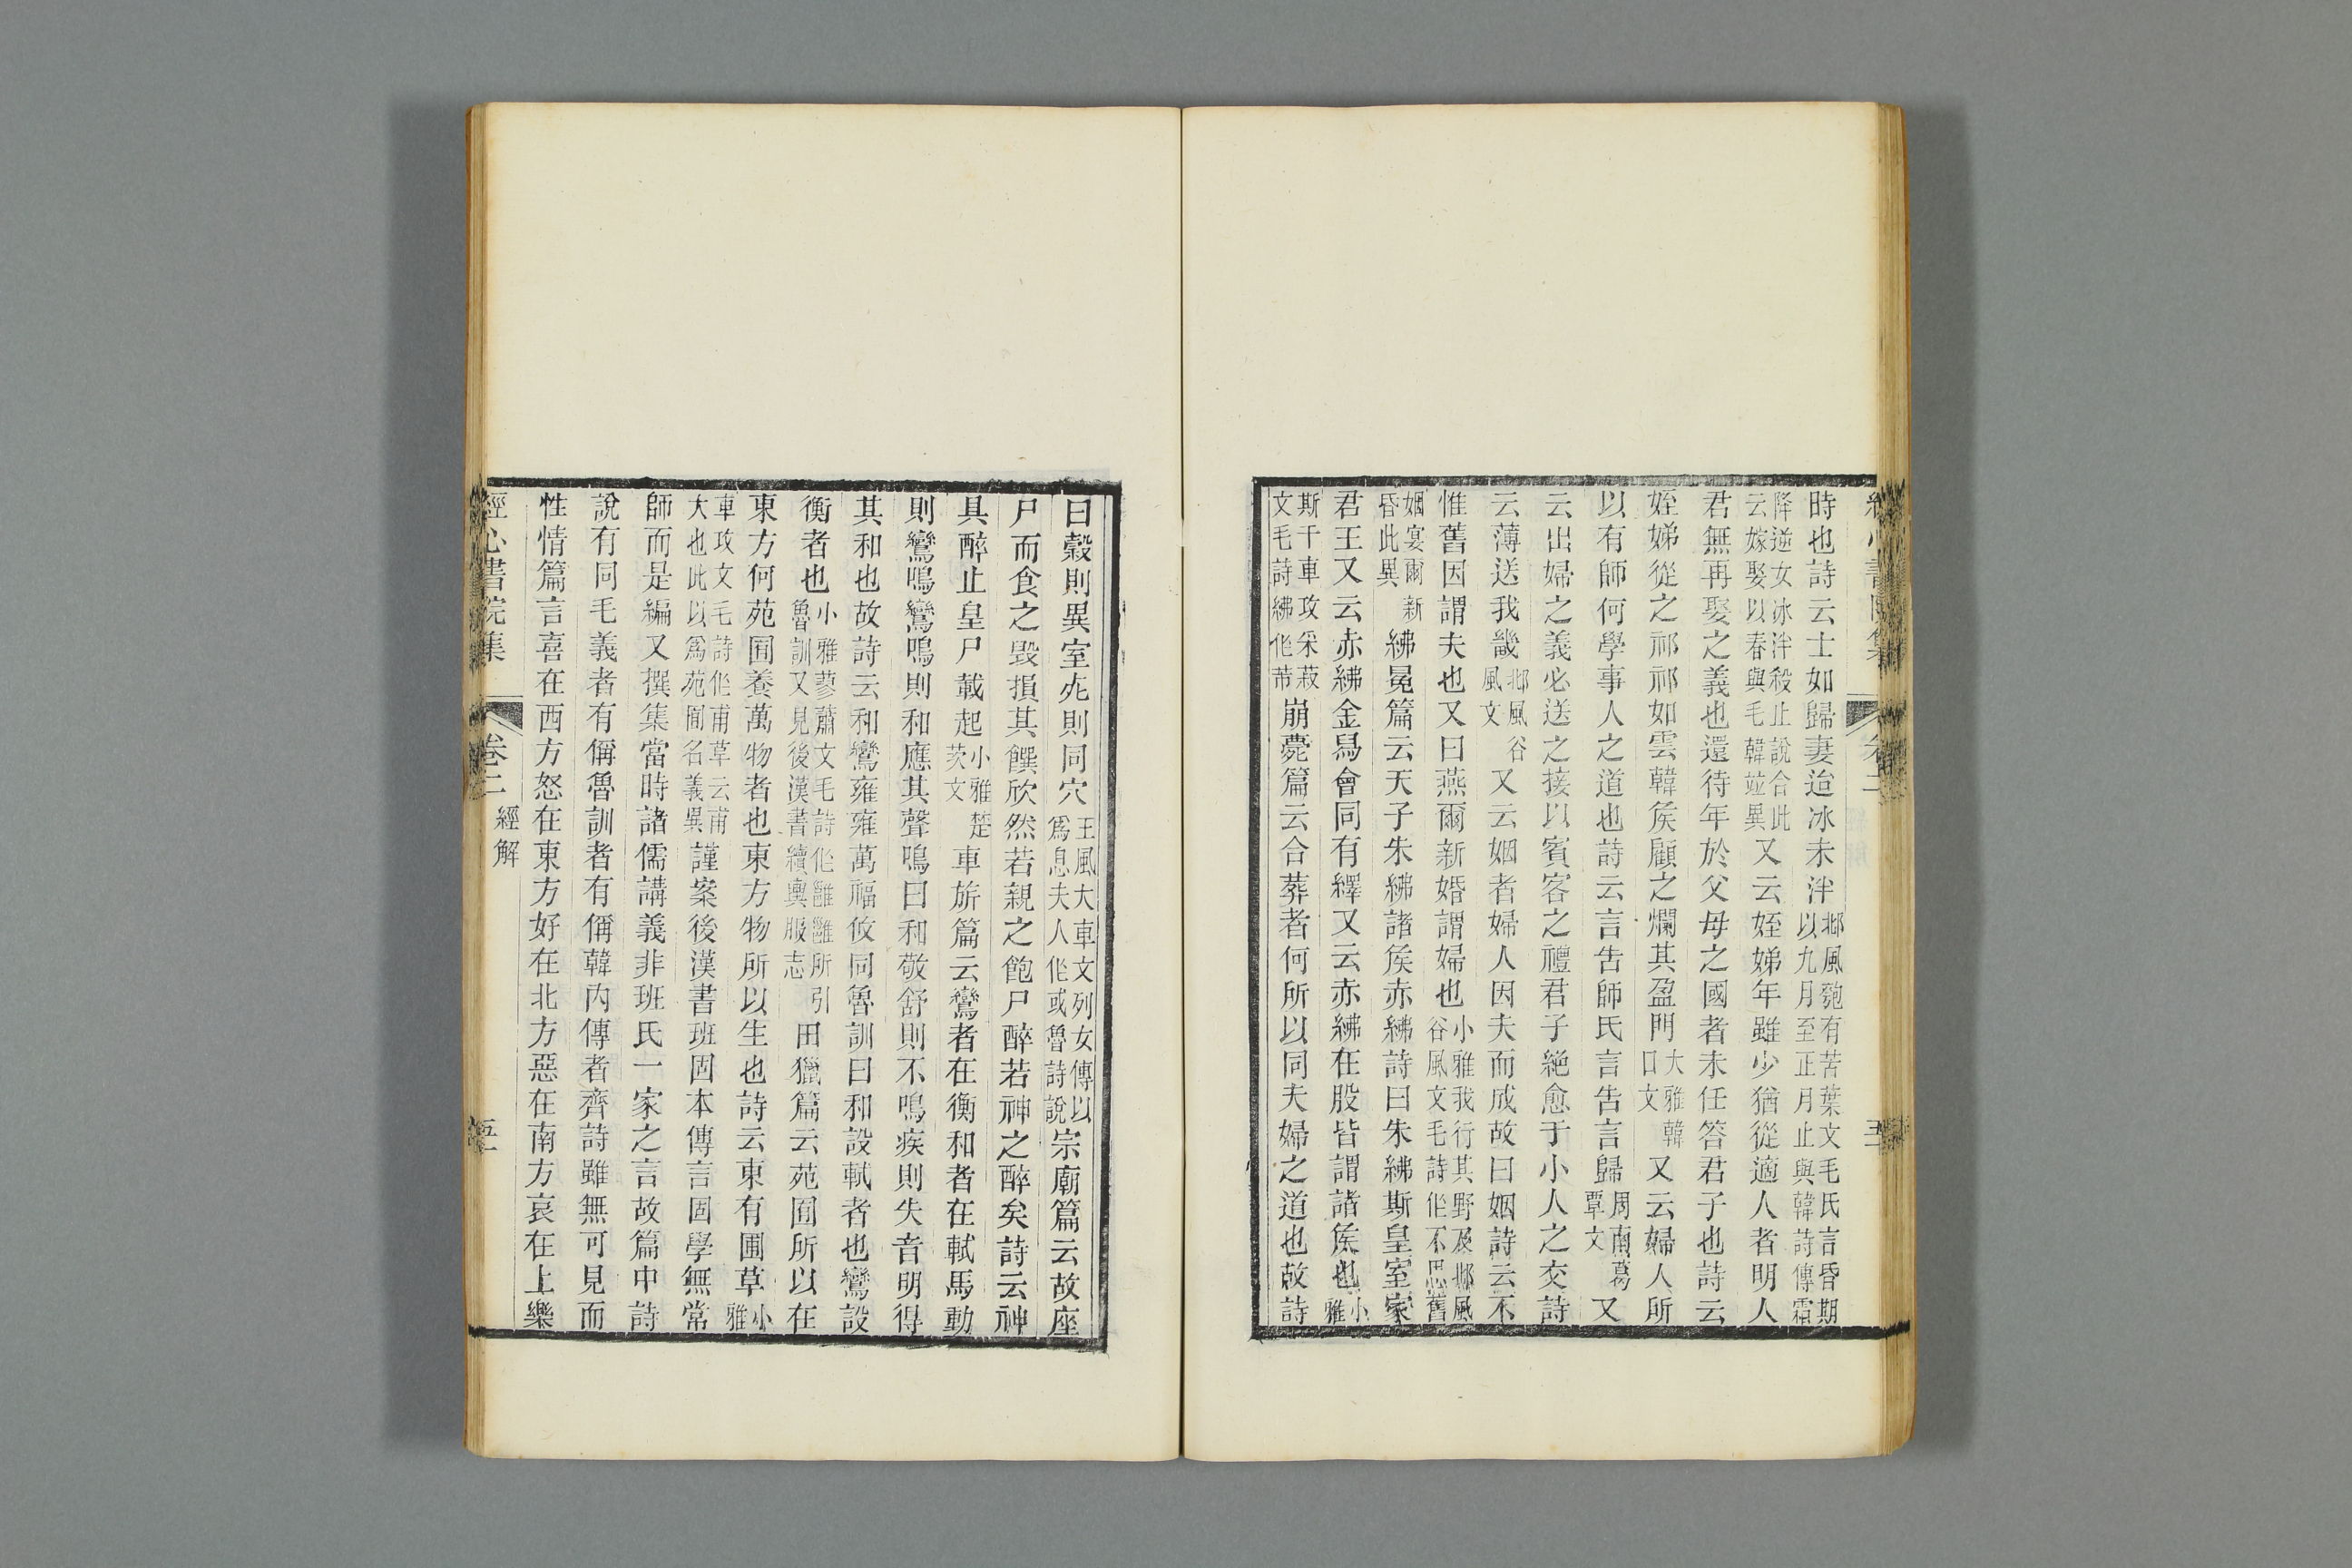 時也詩云士如歸妻迨冰未泮邶風匏有苦葉文毛氏言昏期以九月至正月止與韓詩傳霜
降逆女冰泮殺止說合此云嫁娶以春與毛韓竝異又云姪娣年雖少猶從適人者明人
君無再娶之義也還待年於父母之國者未任答君子也詩云
姪娣從之祁祁如雲韓矦顧之爛其盈門大雅韓日文又云婦人所
以有師何學事人之道也詩云言告師氏言告言歸周南葛覃文又
云出婦之義必送之接以賓客之禮君子絕愈于小人之交詩
云薄送我畿邶風谷風文又云姻者婦人因夫而成故曰姻詩云不
惟舊因謂夫也又曰燕爾新婚謂婦也小雅我行其野及邶風谷風文毛詩作不思舊
姻宴爾新昏此異紼冕篇云天子朱紼諸矦赤紼詩曰朱紼斯皇室家
君王又云赤紼金舄會同有繹又云赤紼在股皆謂諸矦也小雅
斯干車攻采菽文毛詩紼作芾崩薨篇云合葬者何所以同夫婦之道也故詩
曰穀則異室死則同穴王風大車文列女傳以爲息夫人作或魯詩說宗廟篇云故座
尸而食之毀損其饌欣然若親之飽尸醉若神之醉矣詩云神
具醉止皇尸載起小雅楚茨文車旂篇云鸞者在衡和者在軾馬動
則鸞鳴鸞鳴則和應其聲鳴曰和敬舒則不鳴疾則失音明得
其和也故詩云和鸞雍雍萬福攸同魯訓曰和設軾者也鸞設
衡者也小雅蓼蕭文毛詩作雝雝所引魯訓又見後漢書續輿服志田獵篇云苑囿所以在
東方何苑囿養萬物者也東方物所以生也詩云東有圃草小雅
車攻文毛詩作甫草云甫大也此以爲苑囿名義異謹案後漢書班固本傳言固學無常
師而是編又撰集當時諸儒講義非班氏一家之言故篇中詩
說有同毛義者有偁魯訓者有偁韓內傳者齊詩雖無可見而
性情篇言喜在西方怒在東方好在北方惡在南方哀在上樂
經心書院集
卷二
經解